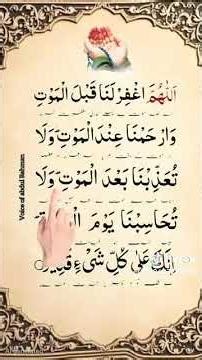 اَللّٰهُمَّ اغْفِرْ لَنَا قَبْلَ الْمَوْتِ
وَارْحَمْنَا عِنْدَ الْمَوْتِ وَلَا
تُعَذِّبْنَا بَعْدَ الْمَوْتِ وَلَا
تُحَاسِبْنَا يَوْمَ
اِنَّكَ عَلٰى كُلِّ شَىْءٍ قَدِيْرٌ
Voice of abdul Rehman